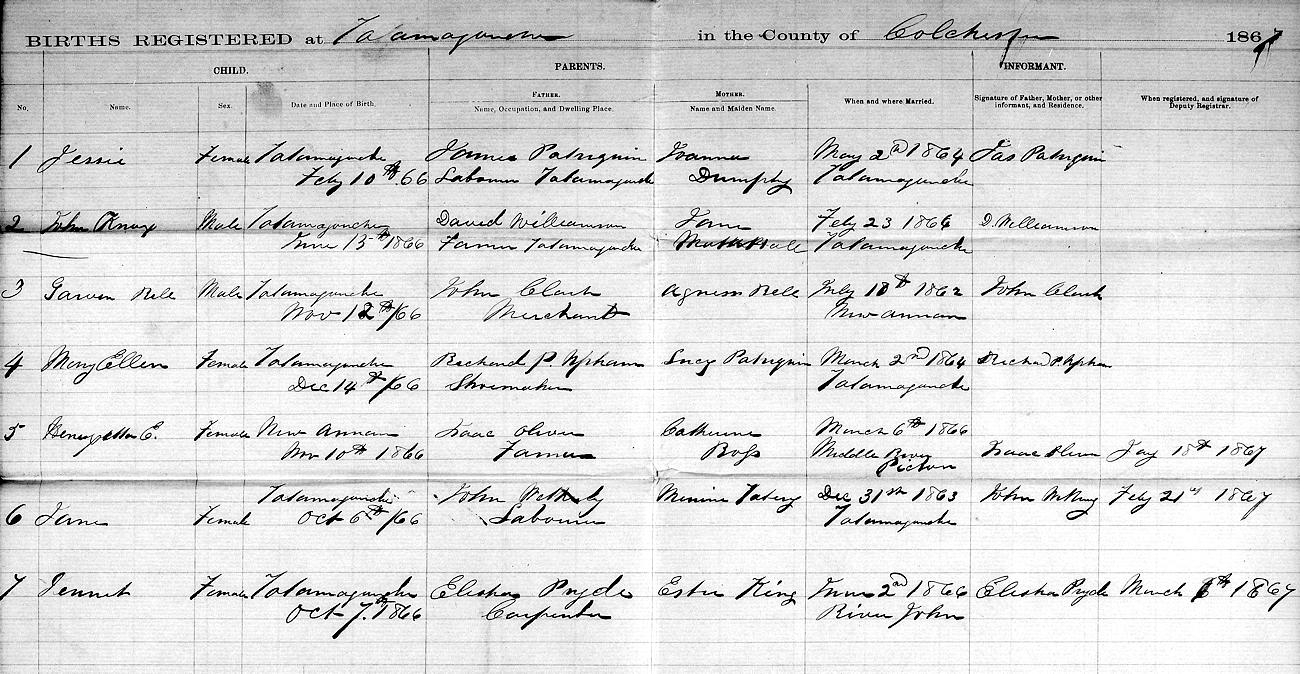 BIRTHS REGISTERED at Tatamagouche in the County of Colchester 1867
CHILD. PARENTS. INFORMANT.
FATHER. MOTHER.
No. Name. Sex. Date and Place of Birth. Name, Occupation, and Dwelling Place. Name and Maiden Name. When and where Married. Signature of Father, Mother, or other informant, and Residence. When registered, and signature of Deputy Registrar.
1 Jessie Female Tatamagouche James Patriquin Joanna May 2nd 1864 Jas Patriquin
Feby 10th 66 Labourer Tatamagouche Dumphy Tatamagouche
2 John Knox Male Tatamagouche David Williamson Jane Feby 23 D. Williamson
June 13th 1866 Farmer Tatamagouche Tatamagouche
3 Male Tatamagouche John Clark Agness July 18th 1862 John Clark
Nov 12th /66 Merchant New Annan
4 Mary Ellen Female Tatamagouche Richard P. Upham Lucy Patriquin March 2nd 1864 Richard P. Upham
Dec 14th /66 Shoemaker Tatamagouche
5 E. Female New Annan Isaac Oliver Catherine March 6th 1866
Nov 10th 1866 Farmer Ross Middle River Isaac Oliver Jay 18th 1867
Pictou
Tatamagouche John Minnie Dec 31st 1863 John Feby 21st 1867
6 Jane Female Oct 6th /66 Labourer Tatamagouche
7 Jennet Female Tatamagouche Elisha Pryde Ester King June 2nd 1866 Elisha Pryde March 6th 1867
Oct 7. 1866 Carpenter River John